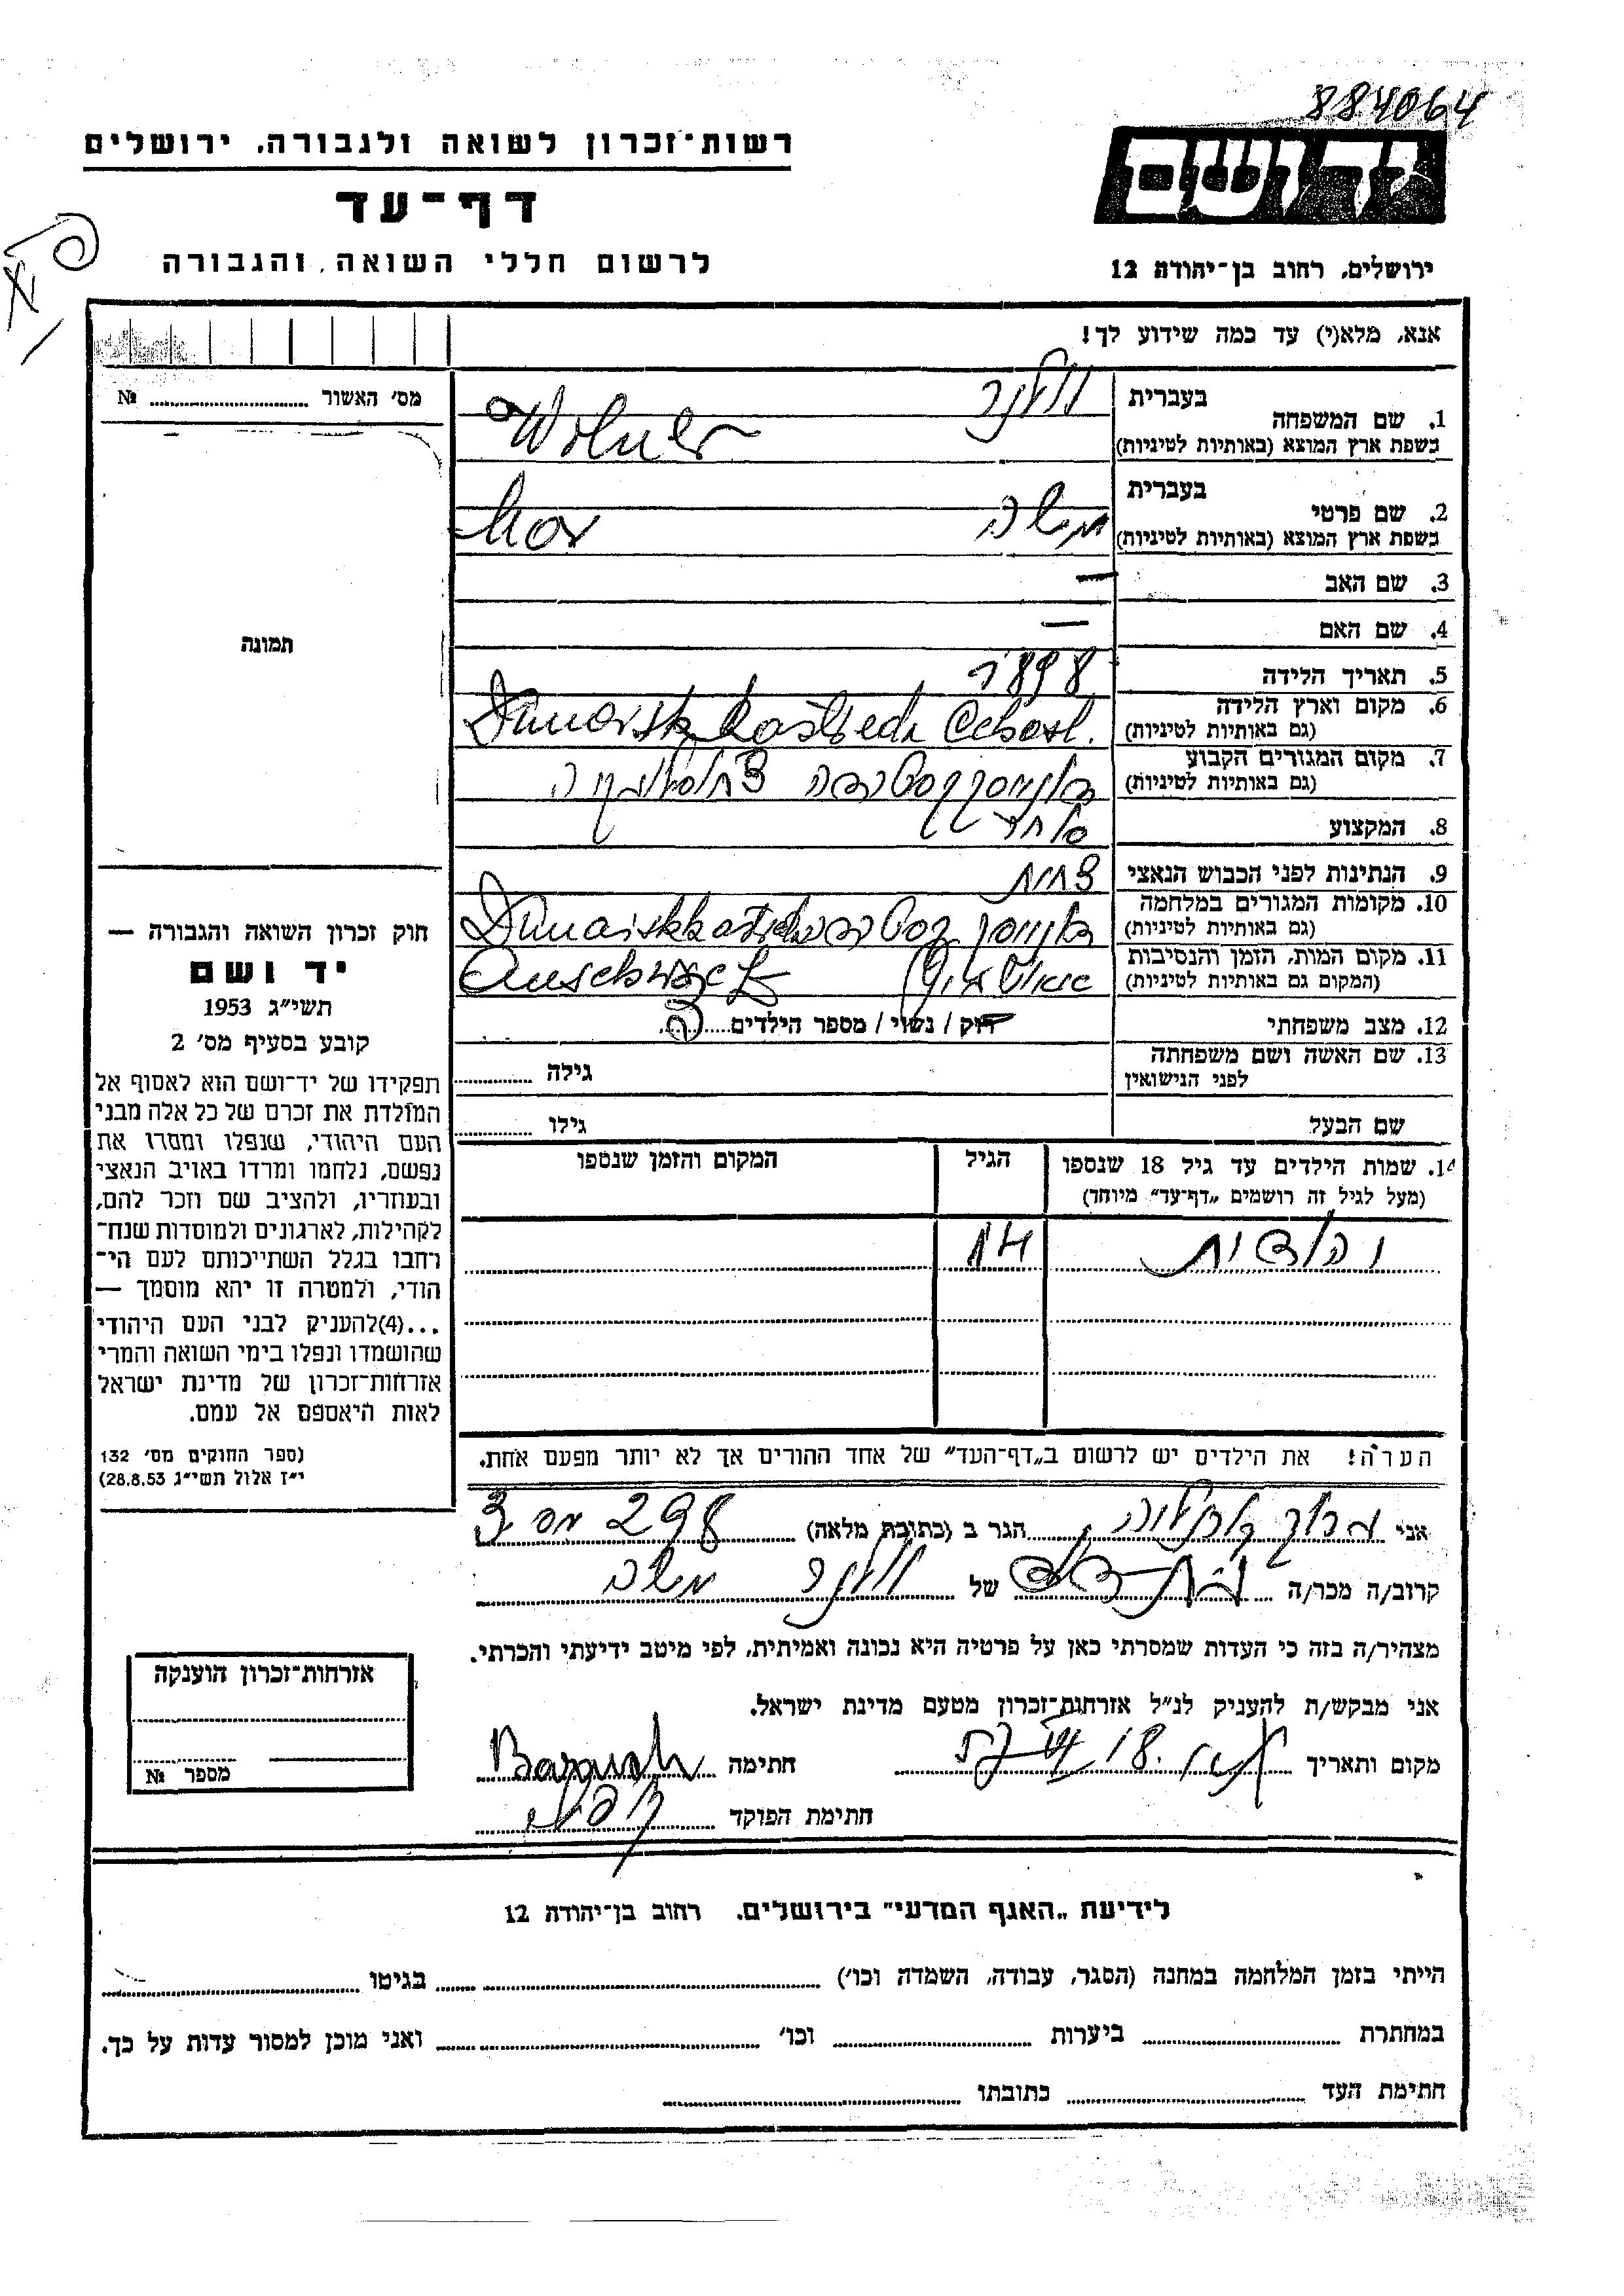 884064
רשות־זכרון לשואה ולגבורה, ירושלים
דף־עד
לרשום חללי השואה והגבורה
ידושם
ירושלים, רחוב בן־יהודה 12
אנא, מלא(י) עד כמה שידוע לך!
מס׳ האשור № 
תמונה
1. שם המשפחה
בעברית וולנר
בשפת ארץ המוצא (באותיות לטיניות) Wolner
2. שם פרטי
בעברית משה
בשפת ארץ המוצא (באותיות לטיניות) Mor
3. שם האב —
4. שם האם —
5. תאריך הלידה 1898
6. מקום וארץ הלידה
(גם באותיות לטיניות)
7. מקום המגורים הקבוע
(גם באותיות לטיניות)
8. המקצוע סוחר
9. הנתינות לפני הכבוש הנאצי צ׳כית
10. מקומות המגורים במלחמה
(גם באותיות לטיניות)
11. מקום המות, הזמן והנסיבות
(המקום גם באותיות לטיניות)
12. מצב משפחתי רוק / נשוי / מספר הילדים
13. שם האשה ושם משפחתה
לפני הנישואין
גילה
שם הבעל
גילו
14. שמות הילדים עד גיל 18 שנספו
(מעל לגיל זה רושמים „דף־עד״ מיוחד)
הגיל
המקום והזמן שנספו
יהודית 14
הערה! את הילדים יש לרשום ב„דף־העד״ של אחד ההורים אך לא יותר מפעם אחת.
חוק זכרון השואה והגבורה —
יד ושם
תשי״ג 1953
קובע בסעיף מס׳ 2
תפקידו של יד־ושם הוא לאסוף אל
המולדת את זכרם של כל אלה מבני
העם היהודי, שנפלו ומסרו את
נפשם, נלחמו ומרדו באויב הנאצי
ובעוזריו, ולהציב שם וזכר להם,
לקהילות, לארגונים ולמוסדות שנח־
רבו בגלל השתייכותם לעם הי־
הודי, ולמטרה זו יהא מוסמך —
...(4) להעניק לבני העם היהודי
שהושמדו ונפלו בימי השואה והמרי
אזרחות־זכרון של מדינת ישראל
לאות היאספם אל עמם.
(ספר החוקים מס׳ 132
י״ז אלול תשי״ג 28.8.53)
אני ברוך הגר ב (כתובת מלאה) 298
קרוב/ה מכר/ה של וולנר משה
מצהיר/ה בזה כי העדות שמסרתי כאן על פרטיה היא נכונה ואמיתית, לפי מיטב ידיעתי והכרתי.
אני מבקש/ת להעניק לנ״ל אזרחות־זכרון מטעם מדינת ישראל.
מקום ותאריך חתימה
חתימת הפוקד
אזרחות־זכרון הוענקה
מספר №
לידיעת „האגף המדעי״ בירושלים, רחוב בן־יהודה 12
הייתי בזמן המלחמה במחנה (הסגר, עבודה, השמדה וכו׳) בגיטו
במחתרת ביערות וכו׳ ואני מוכן למסור עדות על כך.
חתימת העד כתובתו